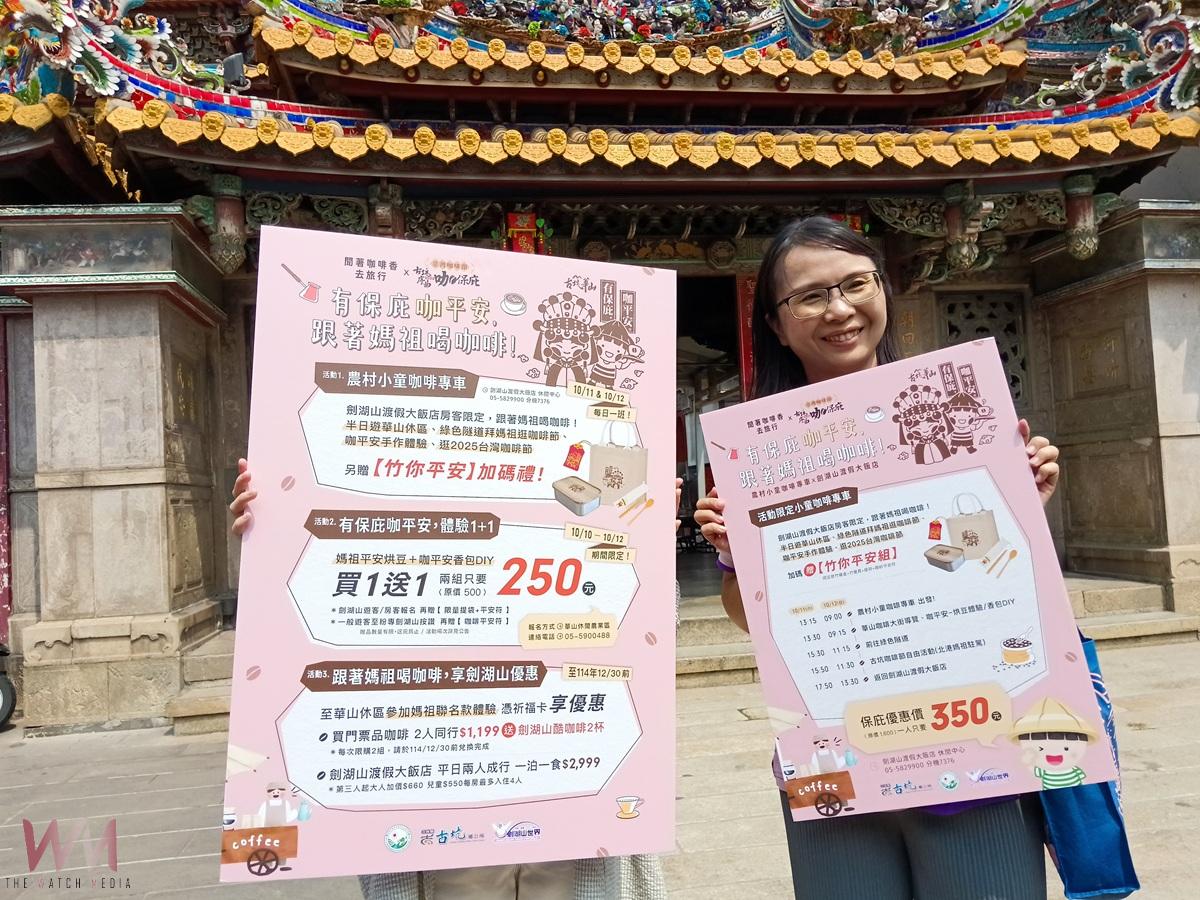 聞著咖啡香
去旅行
×
古坑 幸福
咖保庇
古坑華山
有保庇
咖平安
有保庇咖平安,
跟著媽祖喝咖啡!
活動1. 農村小童咖啡專車
劍湖山渡假大飯店 休閒中心
05-5829900 分機7376
10/11 & 10/12
每日一班!
劍湖山渡假大飯店房客限定,跟著媽祖喝咖啡!
半日遊華山休區、綠色隧道拜媽祖逛咖啡節、
咖平安手作體驗、逛2025台灣咖啡節
另贈【竹你平安】加碼禮!
活動2. 有保庇咖平安,體驗1+1
10/10 – 10/12
期間限定!
媽祖平安烘豆+咖平安香包DIY
買1送1 兩組只要 250元
(原價 500)
* 劍湖山遊客/房客報名 再贈【 限量提袋+平安符 】
* 一般遊客至粉專劍湖山按讚 再贈【 咖啡平安符 】
贈品數量有限,送完為止 / 活動場次詳見公告
報名方式 華山休閒農業區
連絡電話 05-5900488
活動3. 跟著媽祖喝咖啡,享劍湖山優惠
至114年12/30前
至華山休區參加媽祖聯名款體驗,憑祈福卡 享優惠
買門票品咖啡 2人同行$1,199 送 劍湖山酷咖啡2杯
* 每次限購2組,請於114/12/30前兌換完成
劍湖山渡假大飯店 平日兩人成行 一泊一食$2,999
* 第三人起大人加價$660 兒童$550每房最多入住4人
coffee
古坑鄉公所
劍湖山世界
聞著咖啡香
去旅行
×
咖保庇
古坑華山
有保庇
咖平安
有保庇咖平安,
跟著媽祖喝咖啡!
農村小童咖啡專車x劍湖山渡假大飯店
活動限定小童咖啡專車
劍湖山渡假大飯店房客限定,跟著媽祖喝咖啡!
半日遊華山休區、綠色隧道拜媽祖逛咖啡節、
咖平安手作體驗、逛2025台灣咖啡節
加碼 贈【竹你平安組】
10/11(六) 10/12(日)
13:15 09:00 農村小童咖啡專車 出發!
13:30 09:15 華山咖啡大街導覽、咖平安-烘豆體驗/香包DIY
15:30 11:15 前往綠色隧道
15:50 11:30 古坑咖啡節自由活動(北港媽祖駐駕)
17:50 13:30 返回劍湖山渡假大飯店
保庇優惠價 350元
(原價 1,600) 一人只要
劍湖山渡假大飯店 休閒中心
05-5829900 分機7376
coffee
古坑鄉公所
劍湖山世界
WM
THE WATCH MEDIA